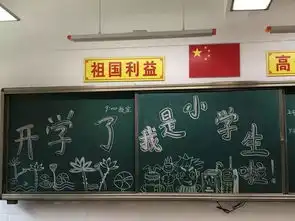 祖国利益
高
开学了
我是小学生啦